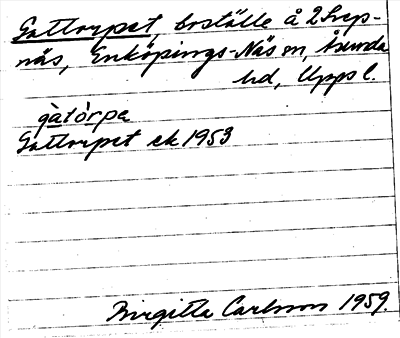 Gattorpet, boställe å 2 Svep-
näs, Enköpings-Näs sn, Åsunda
hd, Uppsl.
gàtòrpa
Gattorpet ek 1953
Birgitta Carlsson 1959.